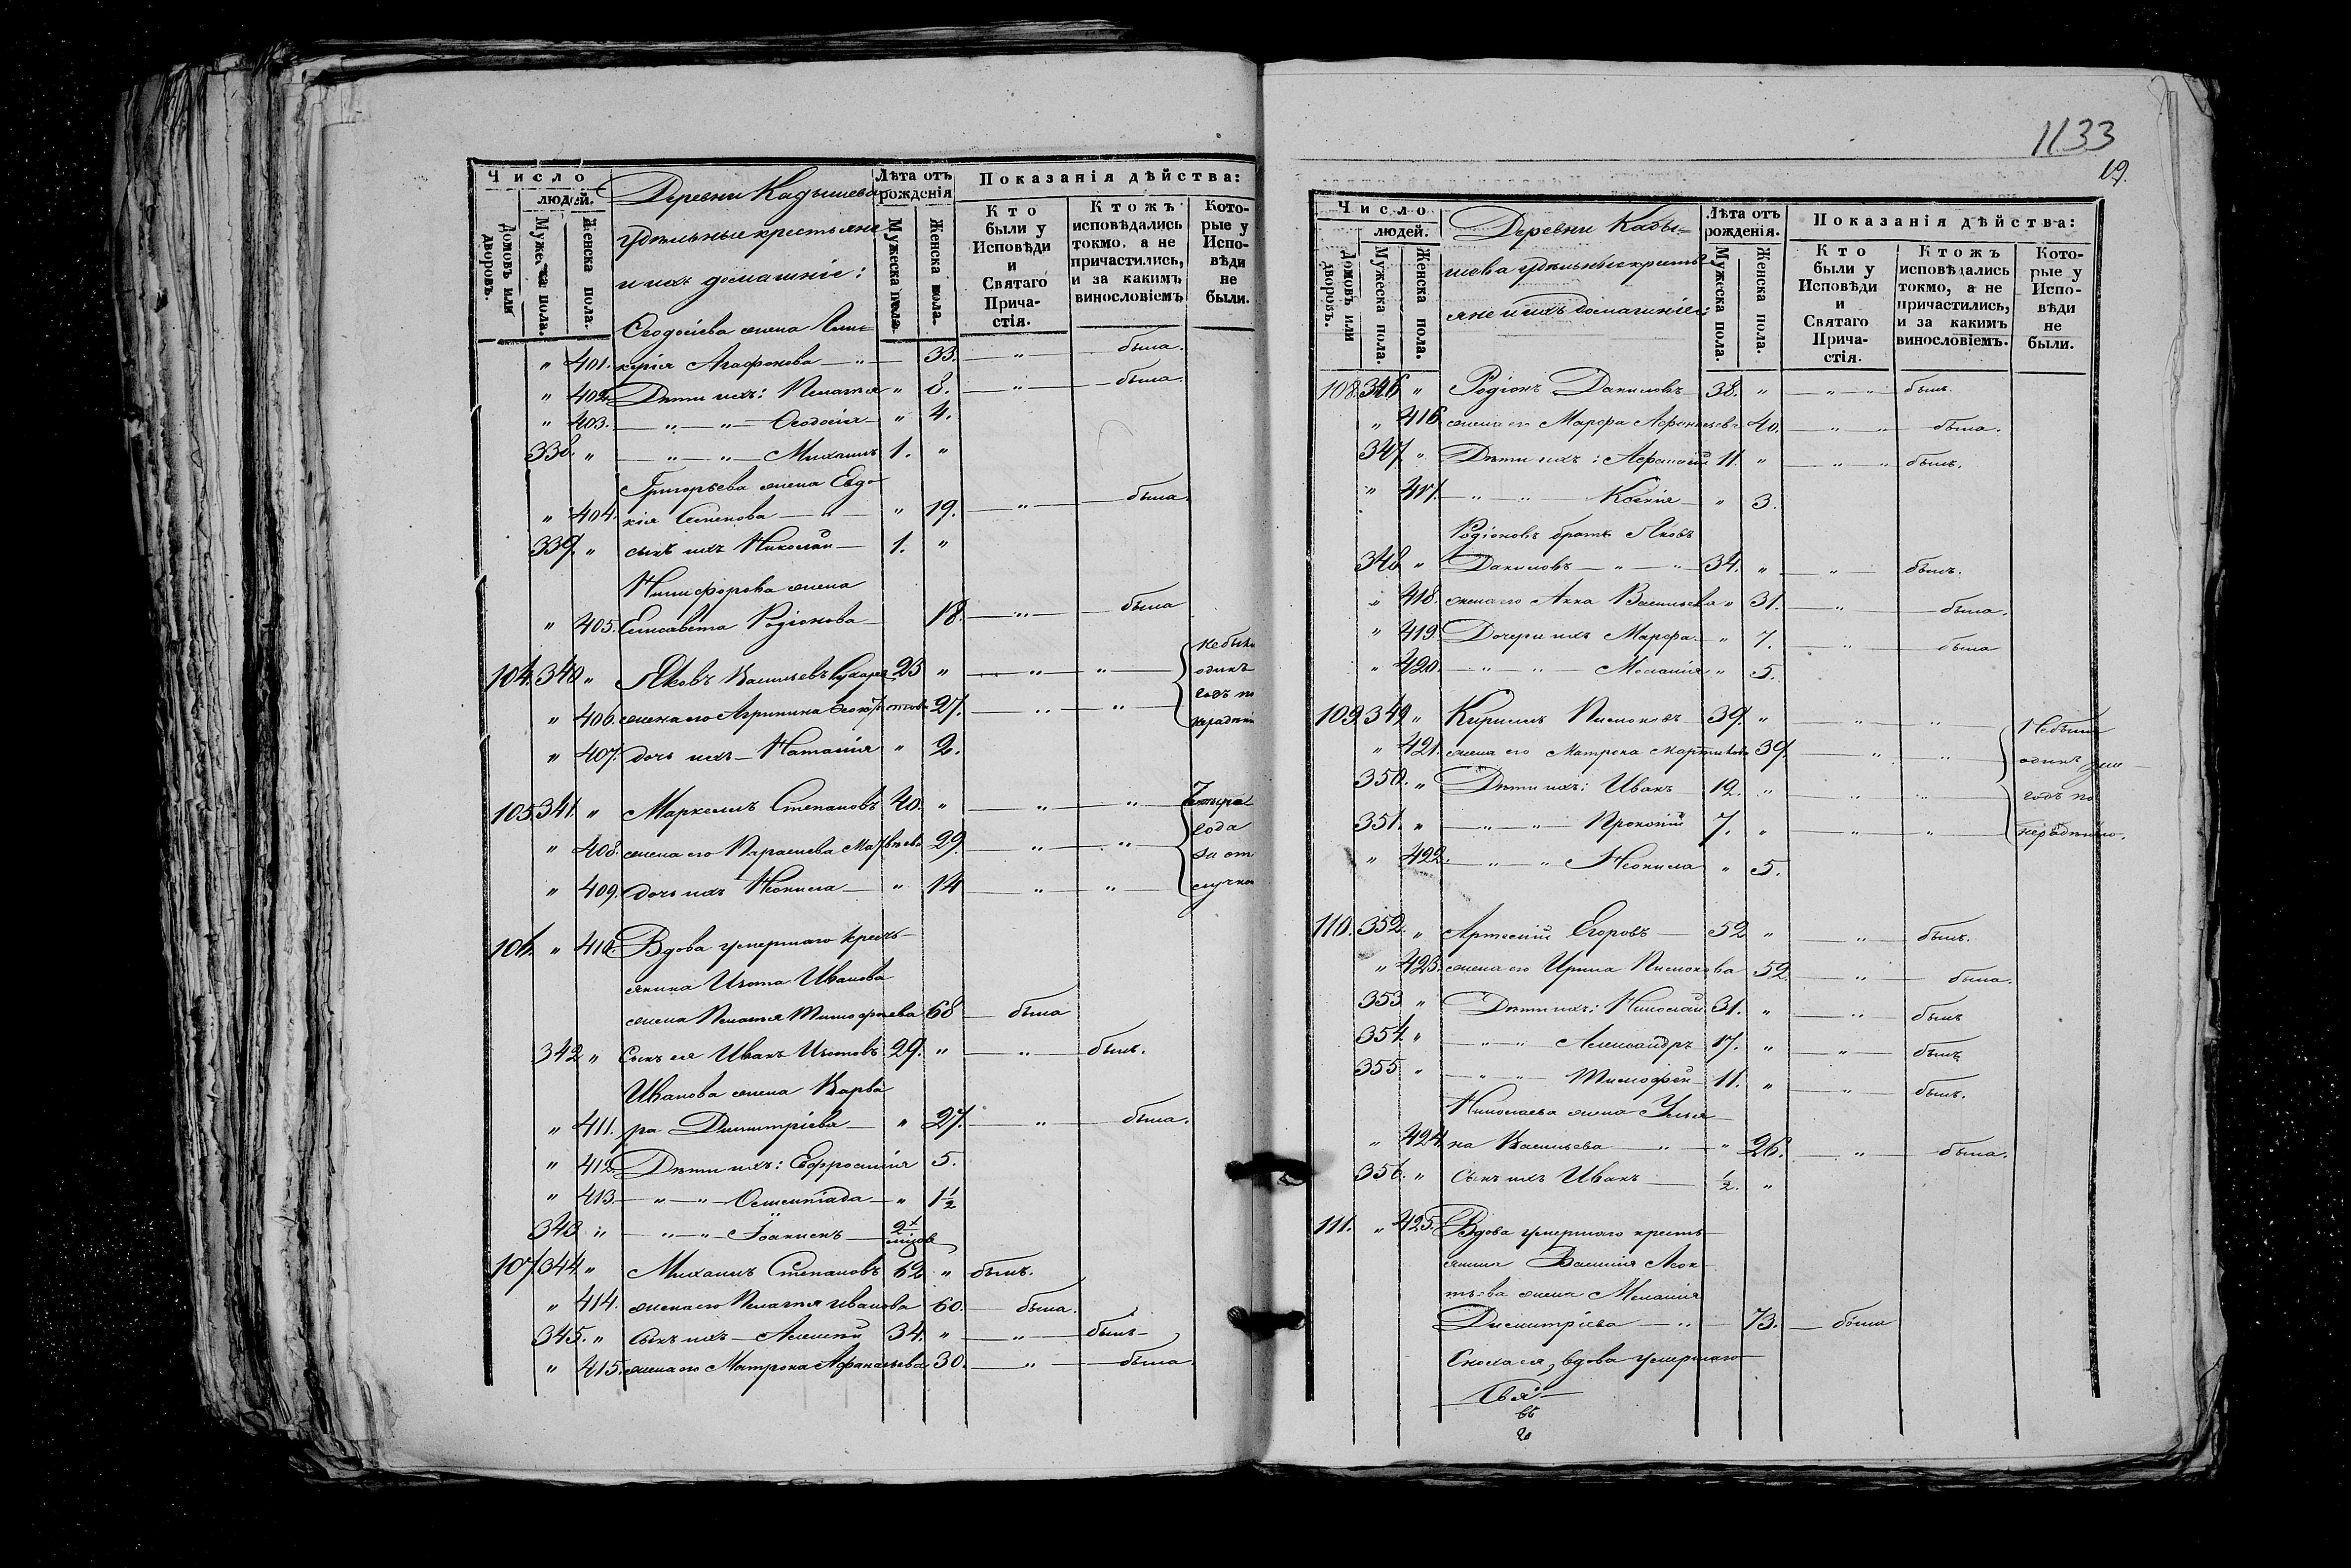 Число
людей.
Домовъ или дворовъ.
Мужеска пола.
Женска пола.
Деревни Кадышева
удѣльные крестьяне
и ихъ домашніе:
Лѣта отъ рожденія
Мужеска пола.
Женска пола.
Показанія дѣйства:
Кто были у Исповѣди и Святаго Причастія.
Ктожъ исповѣдались токмо, а не причастились, и за какимъ винословіемъ
Которые у Исповѣди не были.
Ѳеодосіева жена Гли-
" 401. керія Агафонова — " — 33. — " — была.
" 402. Дѣти ихъ: Пелагея " 8. — " — была.
" 403. — " — " — Ѳеодосія — " 4.
338. " — " — " — Михаилъ 1. "
Григорьева жена Евдо-
" 404. кія Семенова — " — " 19. — " — была.
339. " сынъ ихъ Николай — 1. "
Никифорова жена
" 405. Елисавета Родіонова — 18. — " — была
104. 340 " Яковъ Васильевъ 23 " — " — " — не были
" 406. жена его Агрипина 27. — " — " — одинъ
годъ по
" 407. дочь ихъ — Наталія " 2. нерадѣнію
105. 341. " Маркеллъ Степановъ 40. " — " — " — Четыре
" 408. жена его Параскева Матвѣева 29. — " — " — года
за от
" 409. дочь ихъ Неонила — " 14 — " — " — лучкою
106. " 410. Вдова умершаго кресть-
янина Изота Иванова
жена Пелагея Тимофѣева 68 — была
342 " Сынъ ея Иванъ Изотовъ 29. " — " — былъ.
Иванова жена Варва
" 411. ра Димитріева — " 27. — " — была.
" 412. Дѣти ихъ: Евфросинія 5.
" 413. — " — " — Олимпіада — " 1½
343 " — " — " — Іоанникъ — 2х мѣсяцов
107. 344. " Михаилъ Степановъ 62 " былъ.
" 414. жена его Пелагея Иванова 60. — была.
345. " Сынъ ихъ — Алексей 34. " — " — былъ —
" 415. жена его Матрона Афанасьева 30. — " — была.
1133
19.
Число
людей.
Домовъ или дворовъ.
Мужеска пола.
Женска пола.
Деревни Кады-
шева удѣльные кресть-
яне и ихъ домашніе:
Лѣта отъ рожденія.
Мужеска пола.
Женска пола.
Показанія дѣйства:
Кто были у Исповѣди и Святаго Причастія.
Ктожъ исповѣдались токмо, а не причастились, и за какимъ винословіемъ.
Которые у Исповѣди не были.
108. 346 " Родіонъ Даниловъ — 38. " — " — " — былъ
" 416 жена его Марфа Афанасьева 40. — " — " — была.
347. " Дѣти ихъ: Афанасій 11. " — " — " — былъ.
" 417. — " — " — Ксенія — " 3.
Родіоновъ братъ Яковъ
348 " Даниловъ — " — " 34. " — " — былъ.
" 418. жена его Анна Васильева " 31. — " — была.
" 419. Дочери ихъ Марфа — " 7. — " — была
" 420. — " — " — Меланія " 5.
109 349 " Кириллъ Пимоновъ 39. " " " Не были
" 421. жена его Матрона Мартинова 39. — " — " — одинъ
350. " Дѣти ихъ: Иванъ 12. " " " годъ по
351. " — " — " — Прокопій 7. " " " нерадѣнію.
" 422. — " — " Неонила " 5.
110. 352. " Артемій Егоровъ — 52 " — " — былъ.
" 423. жена его Ирина Пимонова 52 — " — была.
353 " Дѣти ихъ: Николай 31. " — " — былъ
354. " — " — " Александръ 17. " — " — былъ
355 " — " — " Тимофей — 11. " — " — былъ.
Николаева жена Улья-
" 424. на Васильева — " — " 26. — " — была.
356. " Сынъ ихъ Иванъ — ½. "
111. " 425. Вдова умершаго кресть-
янина Василія Леон-
тьева жена Меланія
Димитріева — " — 73. — была
Сноха ея, вдова умершаго
Свя-